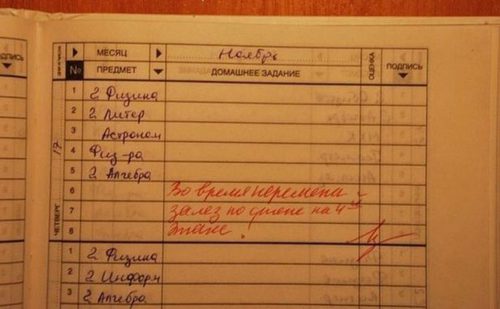 МЕСЯЦ Ноябрь ОЦЕНКА ПОДПИСЬ
№ ПРЕДМЕТ ДОМАШНЕЕ ЗАДАНИЕ
1 2 Физика
2 2 Литер
3 Астроном
4 Физ-ра
5 2 Алгебра
6 Во время перемены
7 залез по стене на 4ый
8 этаж!
17
ЧЕТВЕРГ
1 2 Физика
2 2 Информ
3 2 Алгебра